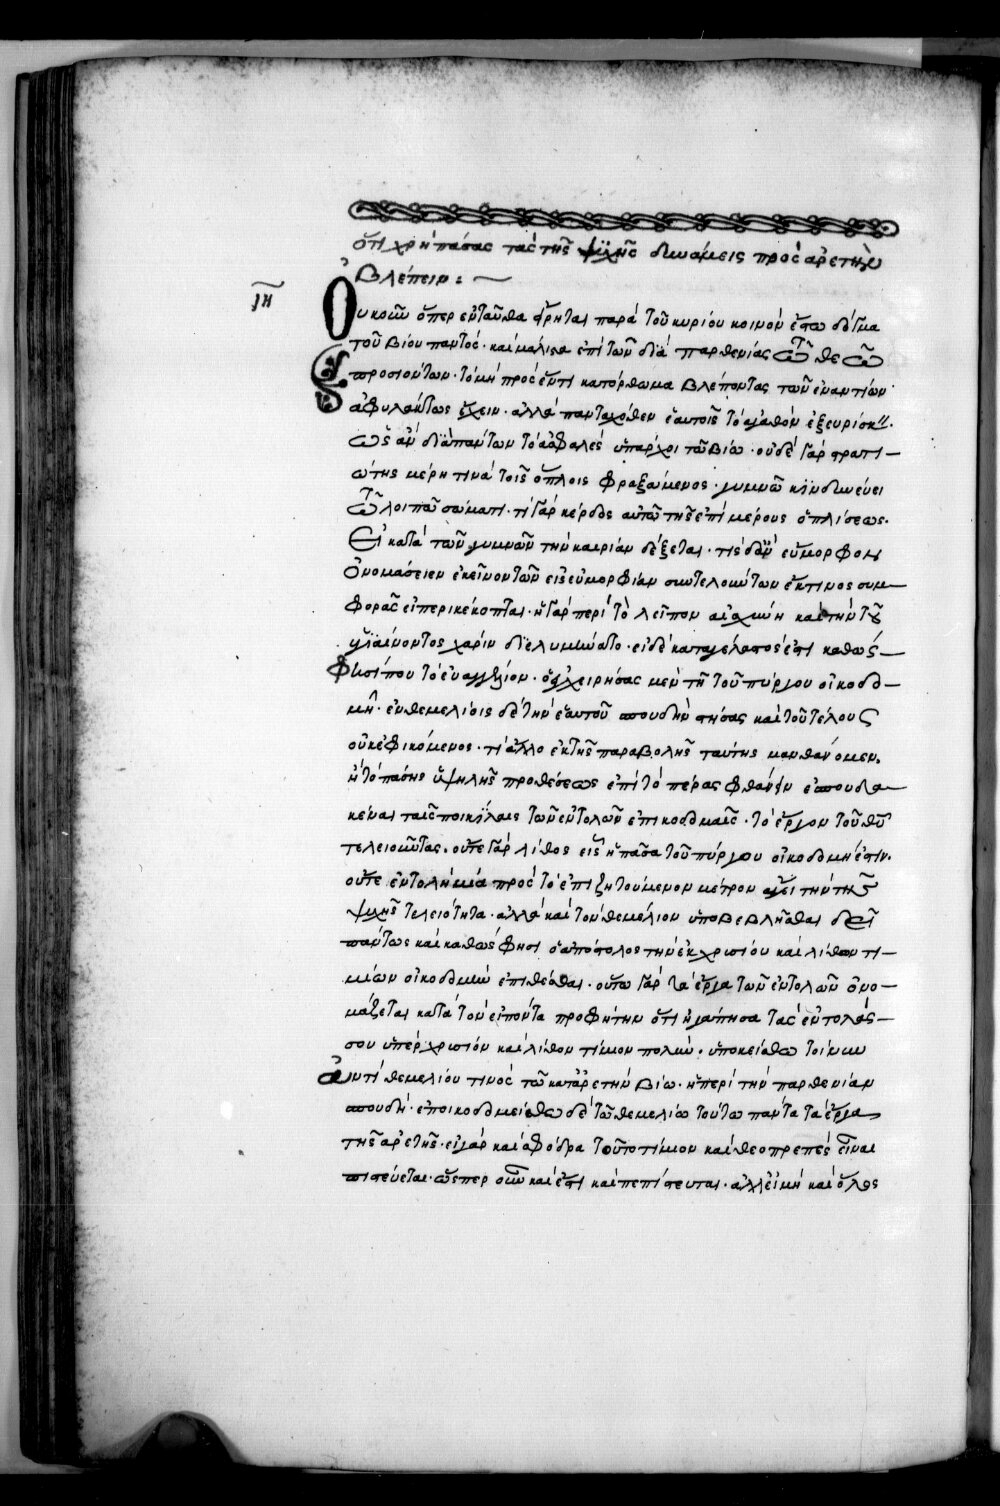 ὅτι χρὴ πάσας τὰς τῆς ψυχῆς δυνάμεις πρὸς ἀρετὴν
βλέπειν :
ιη
Οὐκοῦν ὅπερ ἐνταῦθα εἴρηται παρὰ τοῦ κυρίου κοινὸν ἔστω δόγμα
τοῦ βίου παντός · καὶ μάλιστα ἐπὶ τῶν διὰ παρθενίας τῷ θεῷ
προσιόντων · τὸ μὴ πρὸς ἕν τι κατόρθωμα βλέποντας τῶν ἐναντίων
ἀφυλάκτως ἔχειν · ἀλλὰ πανταχόθεν ἑαυτοῖς τὸ ἀγαθὸν ἐξευρίσκειν ·
ὡς ἂν διὰ πάντων τὸ ἀσφαλὲς ὑπάρχοι τῶ βίω · οὐδὲ γὰρ στρατι-
ώτης μέρη τινὰ τοῖς ὅπλοις φραξάμενος · γυμνῶ κινδυνεύει
τῶ λοιπῶ σώματι · τί γὰρ κέρδος αὐτῶ τῆς ἐπὶ μέρους ὁπλίσεως ·
εἰ κατὰ τῶν γυμνῶν τὴν καιρίαν δέξεται · τίς δ' ἂν εὔμορφον
ὀνομάσειεν ἐκεῖνον τῶν εἰς εὐμορφίαν συντελούντων ἔκ τινος συμ-
φορᾶς εἰ περικέκοπται · ἡ γὰρ περὶ τὸ λεῖπον αἰσχύνη καὶ τὴν τοῦ
ὑγιαίνοντος χάριν διελυμήνατο · εἰ δὲ καταγέλαστός ἐστι καθώς
φησί που τὸ εὐαγγέλιον · ὁ ἐγχειρήσας μὲν τῆ τοῦ πύργου οἰκοδο-
μῆ · ἐν θεμελίοις δὲ τὴν ἑαυτοῦ σπουδὴν στήσας καὶ τοῦ τέλους
οὐκ ἐφικόμενος · τί ἄλλο ἐκ τῆς παραβολῆς ταύτης μανθάνομεν.
ἢ τὸ πάσης ὑψηλῆς προθέσεως ἐπὶ τὸ πέρας φθάνειν ἐσπουδα-
κέναι ταῖς ποικίλαις τῶν ἐντολῶν ἐπικοδομαῖς · τὸ ἔργον τοῦ θεοῦ
τελειοῦντας. οὔτε γὰρ λίθος εἷς ἡ πᾶσα τοῦ πύργου οἰκοδομή ἐστιν.
οὔτε ἐντολὴ μία πρὸς τὸ ἐπιζητούμενον μέτρον ἄγει τὴν τῆς
ψυχῆς τελειότητα · ἀλλὰ καὶ τὸν θεμέλιον ὑποβεβλῆσθαι δεῖ
πάντως καὶ καθώς φησι ὁ ἀπόστολος τὴν ἐκ χρυσίου καὶ λίθων τι-
μίων οἰκοδομὴν ἐπιθέσθαι. οὕτω γὰρ τὰ ἔργα τῶν ἐντολῶν ὀνο-
μάζεται κατὰ τὸν εἰπόντα προφήτην ὅτι ἠγάπησα τὰς ἐντολάς
σου ὑπὲρ χρυσίον καὶ λίθον τίμιον πολύν. ὑποκείσθω τοίνυν
ἀντὶ θεμελίου τινὸς τῶ κατ' ἀρετὴν βίω · ἡ περὶ τὴν παρθενίαν
σπουδή · ἐποικοδομείσθω δὲ τῶ θεμελίω τούτω πάντα τὰ ἔργα
τῆς ἀρετῆς · εἰ γὰρ καὶ σφόδρα τοῦτο τίμιον καὶ θεοπρεπὲς εἶναι
πιστεύεται · ὥσπερ οὖν καὶ ἔστι καὶ πεπίστευται · ἀλλ' εἰ μὴ καὶ ὅλος